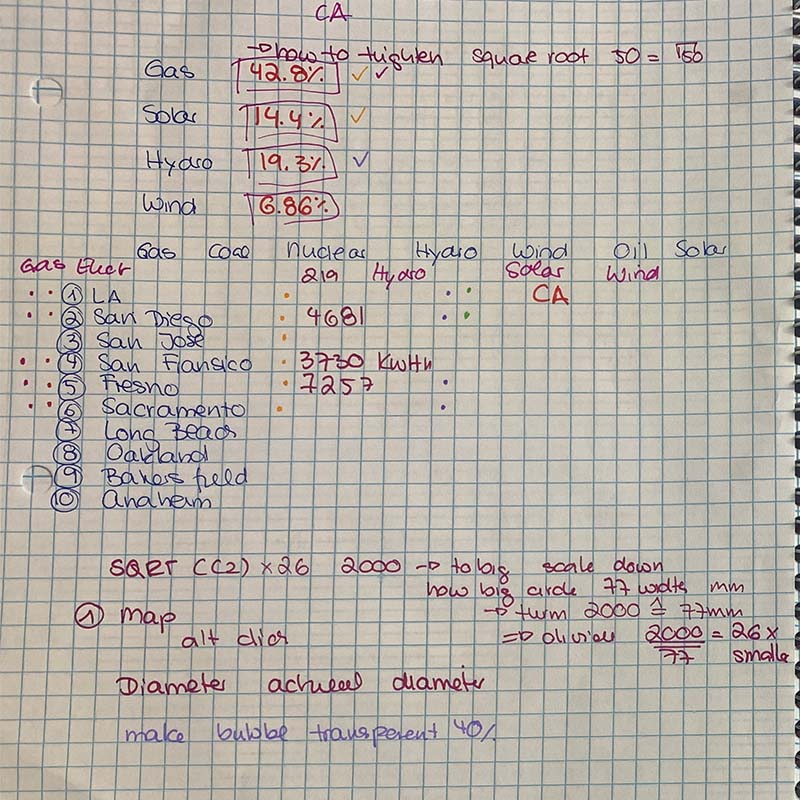 CA
→ how to tighten square root 50 = √50
Gas 42.8% ✓ ✓
Solar 14.4% ✓
Hydro 19.3% ✓
Wind 6.86%
Gas Coal nuclear Hydro Wind Oil Solar
Gas 219 Hydro Solar Wind
① LA CA
② San Diego 4681
③ San Jose
④ San Fransico 3730 KWHh
⑤ Fresno 7257
⑥ Sacramento
⑦ Long Beach
⑧ Oakland
⑨ Bakersfield
⑩ Anaheim
SQRT (C2) × 26 2000 → to big scale down
how big circle 77 width mm
① map → turn 2000 ≙ 77mm
alt => 2000/77 = 26 x
smaller
Diameter diameter
make bubbel transperent 40%